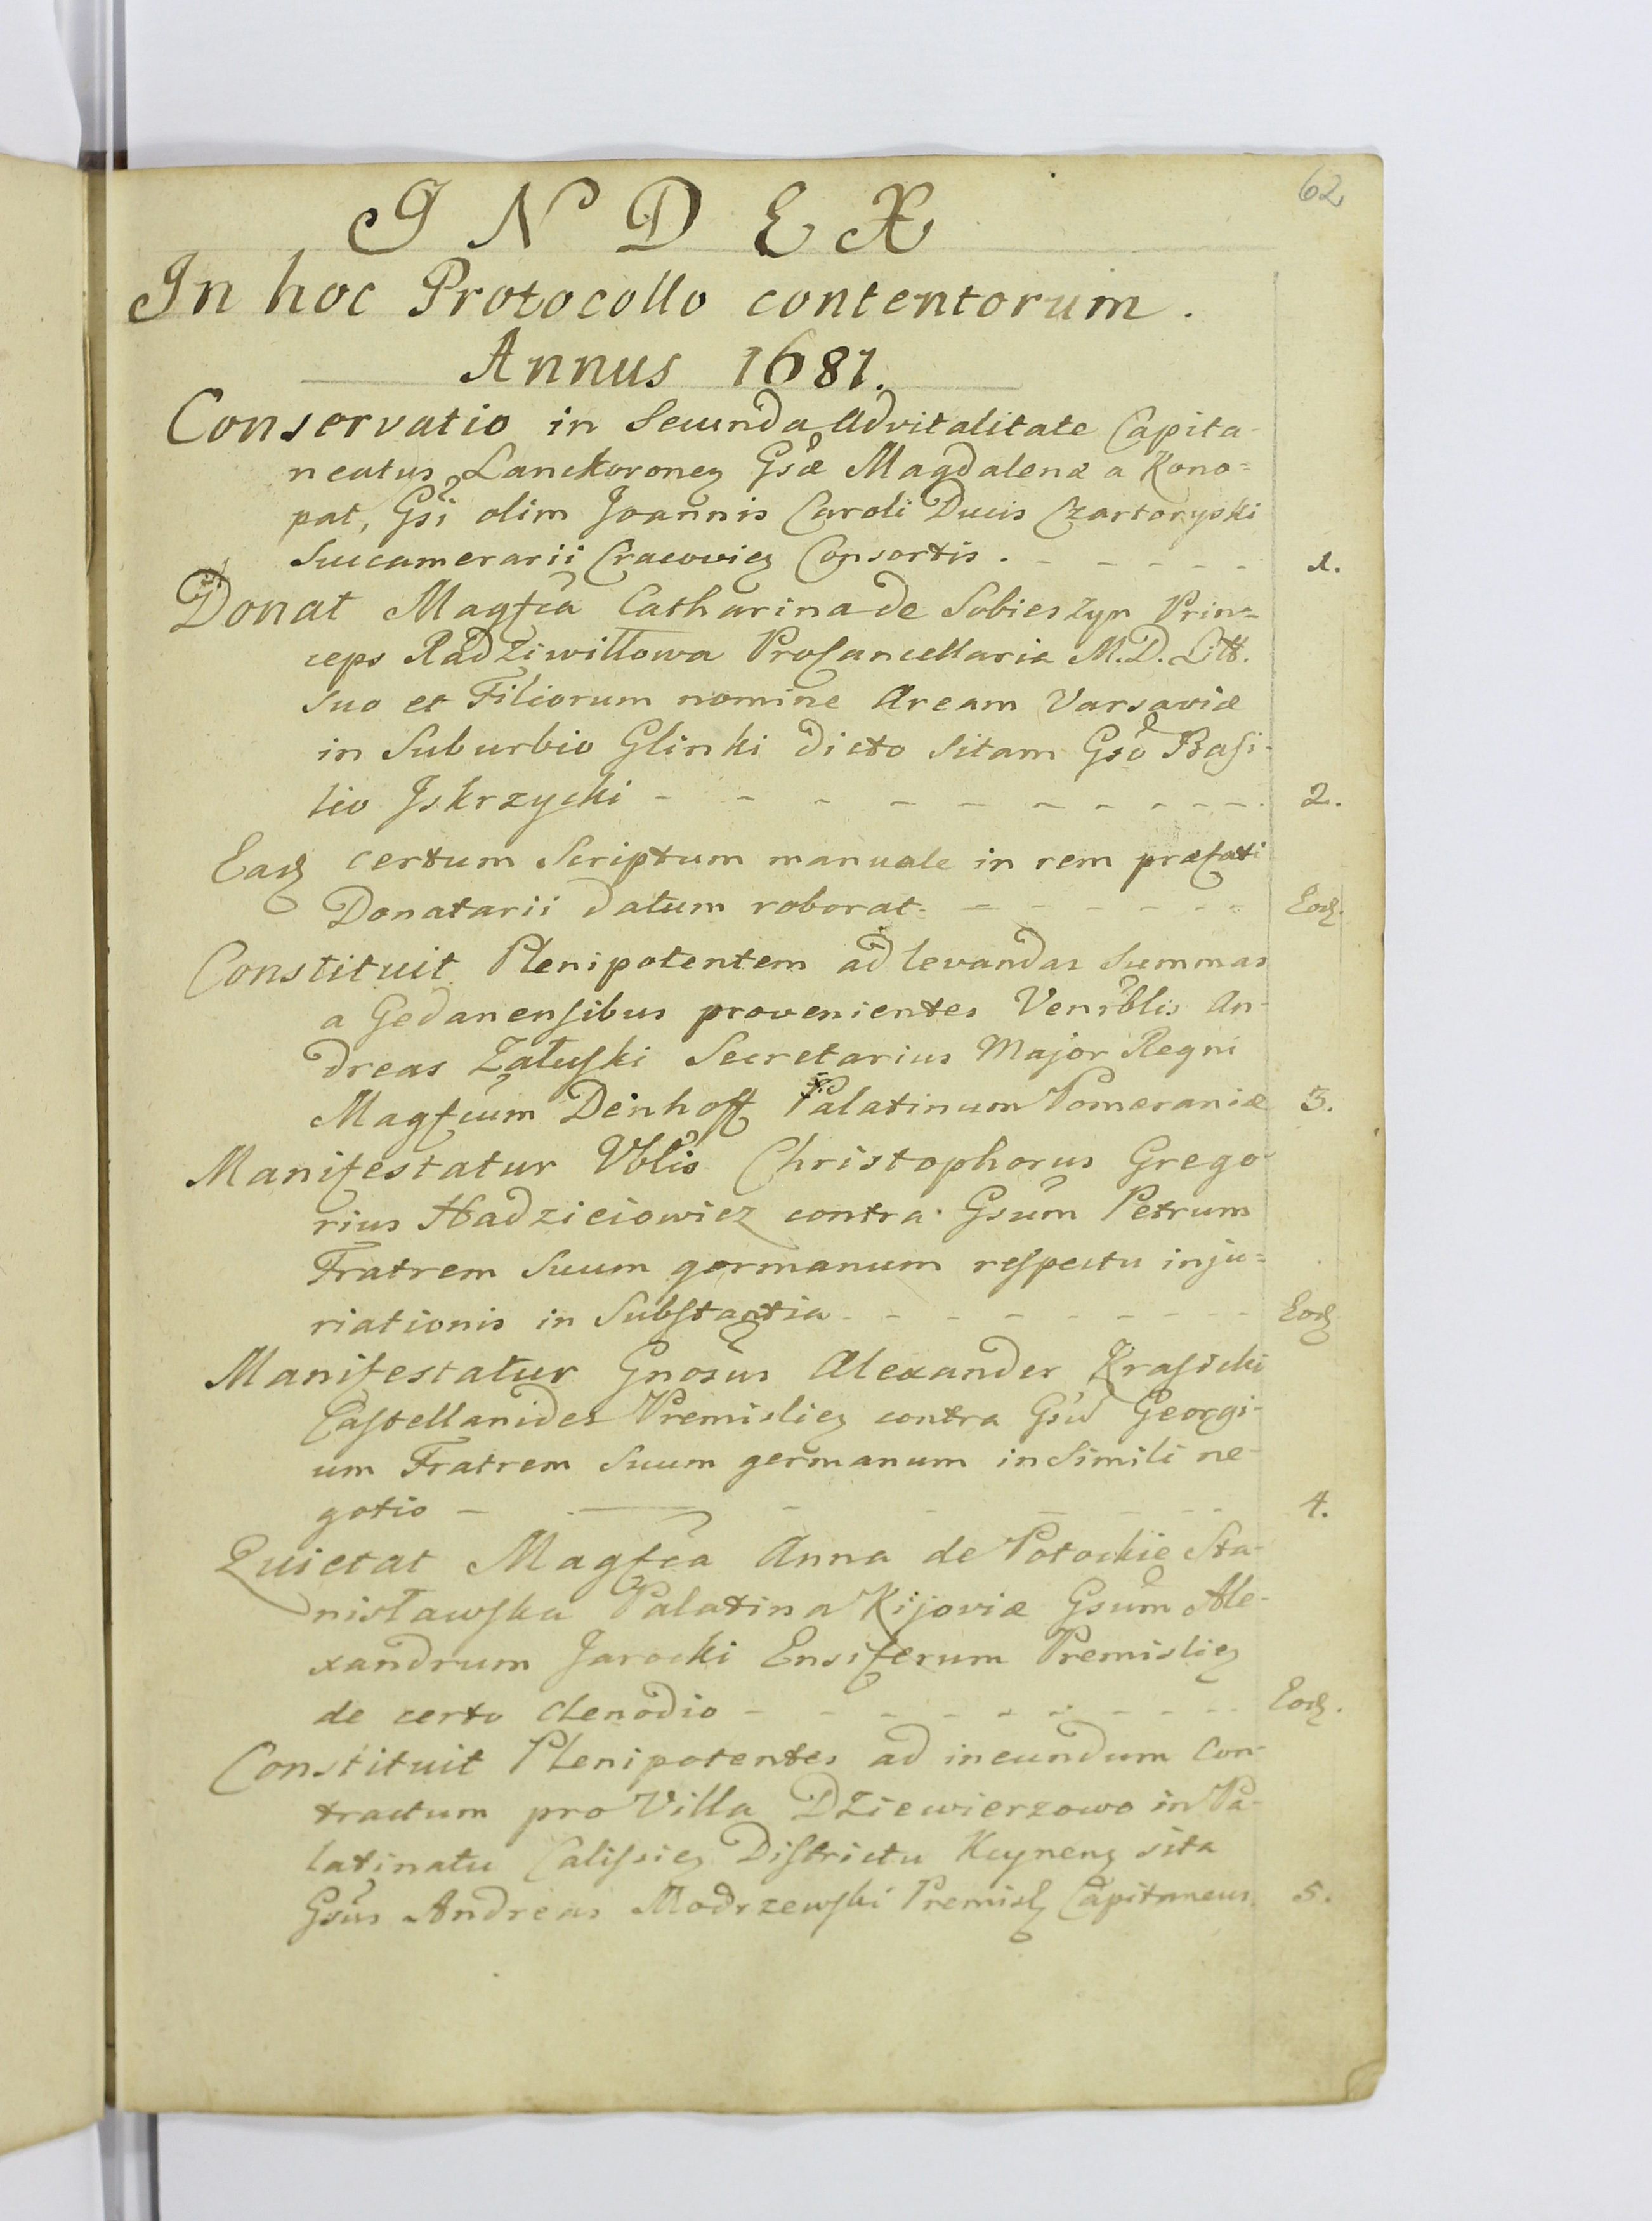 62
INDEX
In hoc Protocollo contentorum.
Annus 1681.
Conservatio in Secunda Advitalitate Capita-
neatus Lanckoroneq Gsæ Magdalenæ a Kono=
pat, Gsi olim Joannis Caroli Ducis Czartoryski
Succamerarii Cracovieq Consortis. - - - - - 1.
Donat Magfca Catharina de Sobieszyn Prin=
ceps Radziwiłłowa Procancellaria M.D. Litt.
suo et Filiorum nomine Aream Varsaviæ
in Suburbio Glinki dicto Sitam Gso Basi-
lio Jskrzycki - - - - - - - - - - 2.
Eadq certum Scriptum manuale in rem præfati
Donatarii datum roborat. - - - - - - Eodq.
Constituit Plenipotentem ad levandas Summas
a Gedanensibus provenientes Venrblis An-
dreas Załuski Secretarius Major Regni
Magfcum Denhoff Palatinum Pomeraniæ 3.
Manifestatur Vblis Christophorus Grego-
rius Hadzieiowicz contra Gsum Petrum
Fratrem Suum germanum respectu inju=
riationis in Substantia - - - - - - - - Eodq
Manifestatur Gnosus Alexander Krasicki
Castellanides Premislieq contra Gsu Georgi-
um Fratrem Suum germanum in Simili ne-
gotio - - - - - - - 4.
Quietat Magfca Anna de Potockie Sta-
nisławska Palatina Kijoviæ Gsum Ale-
xandrum Jarocki Ensiferum Premislieq
de certo Clenodio - - - - - - - - - Eodq.
Constituit Plenipotentes ad ineundum Con-
tractum pro Villa Dziewierzowo in Pa-
latinatu Calissieq Districtu Kcyneng sita
Gsus Andreas Modrzewski Premislq Capitaneus. 5.